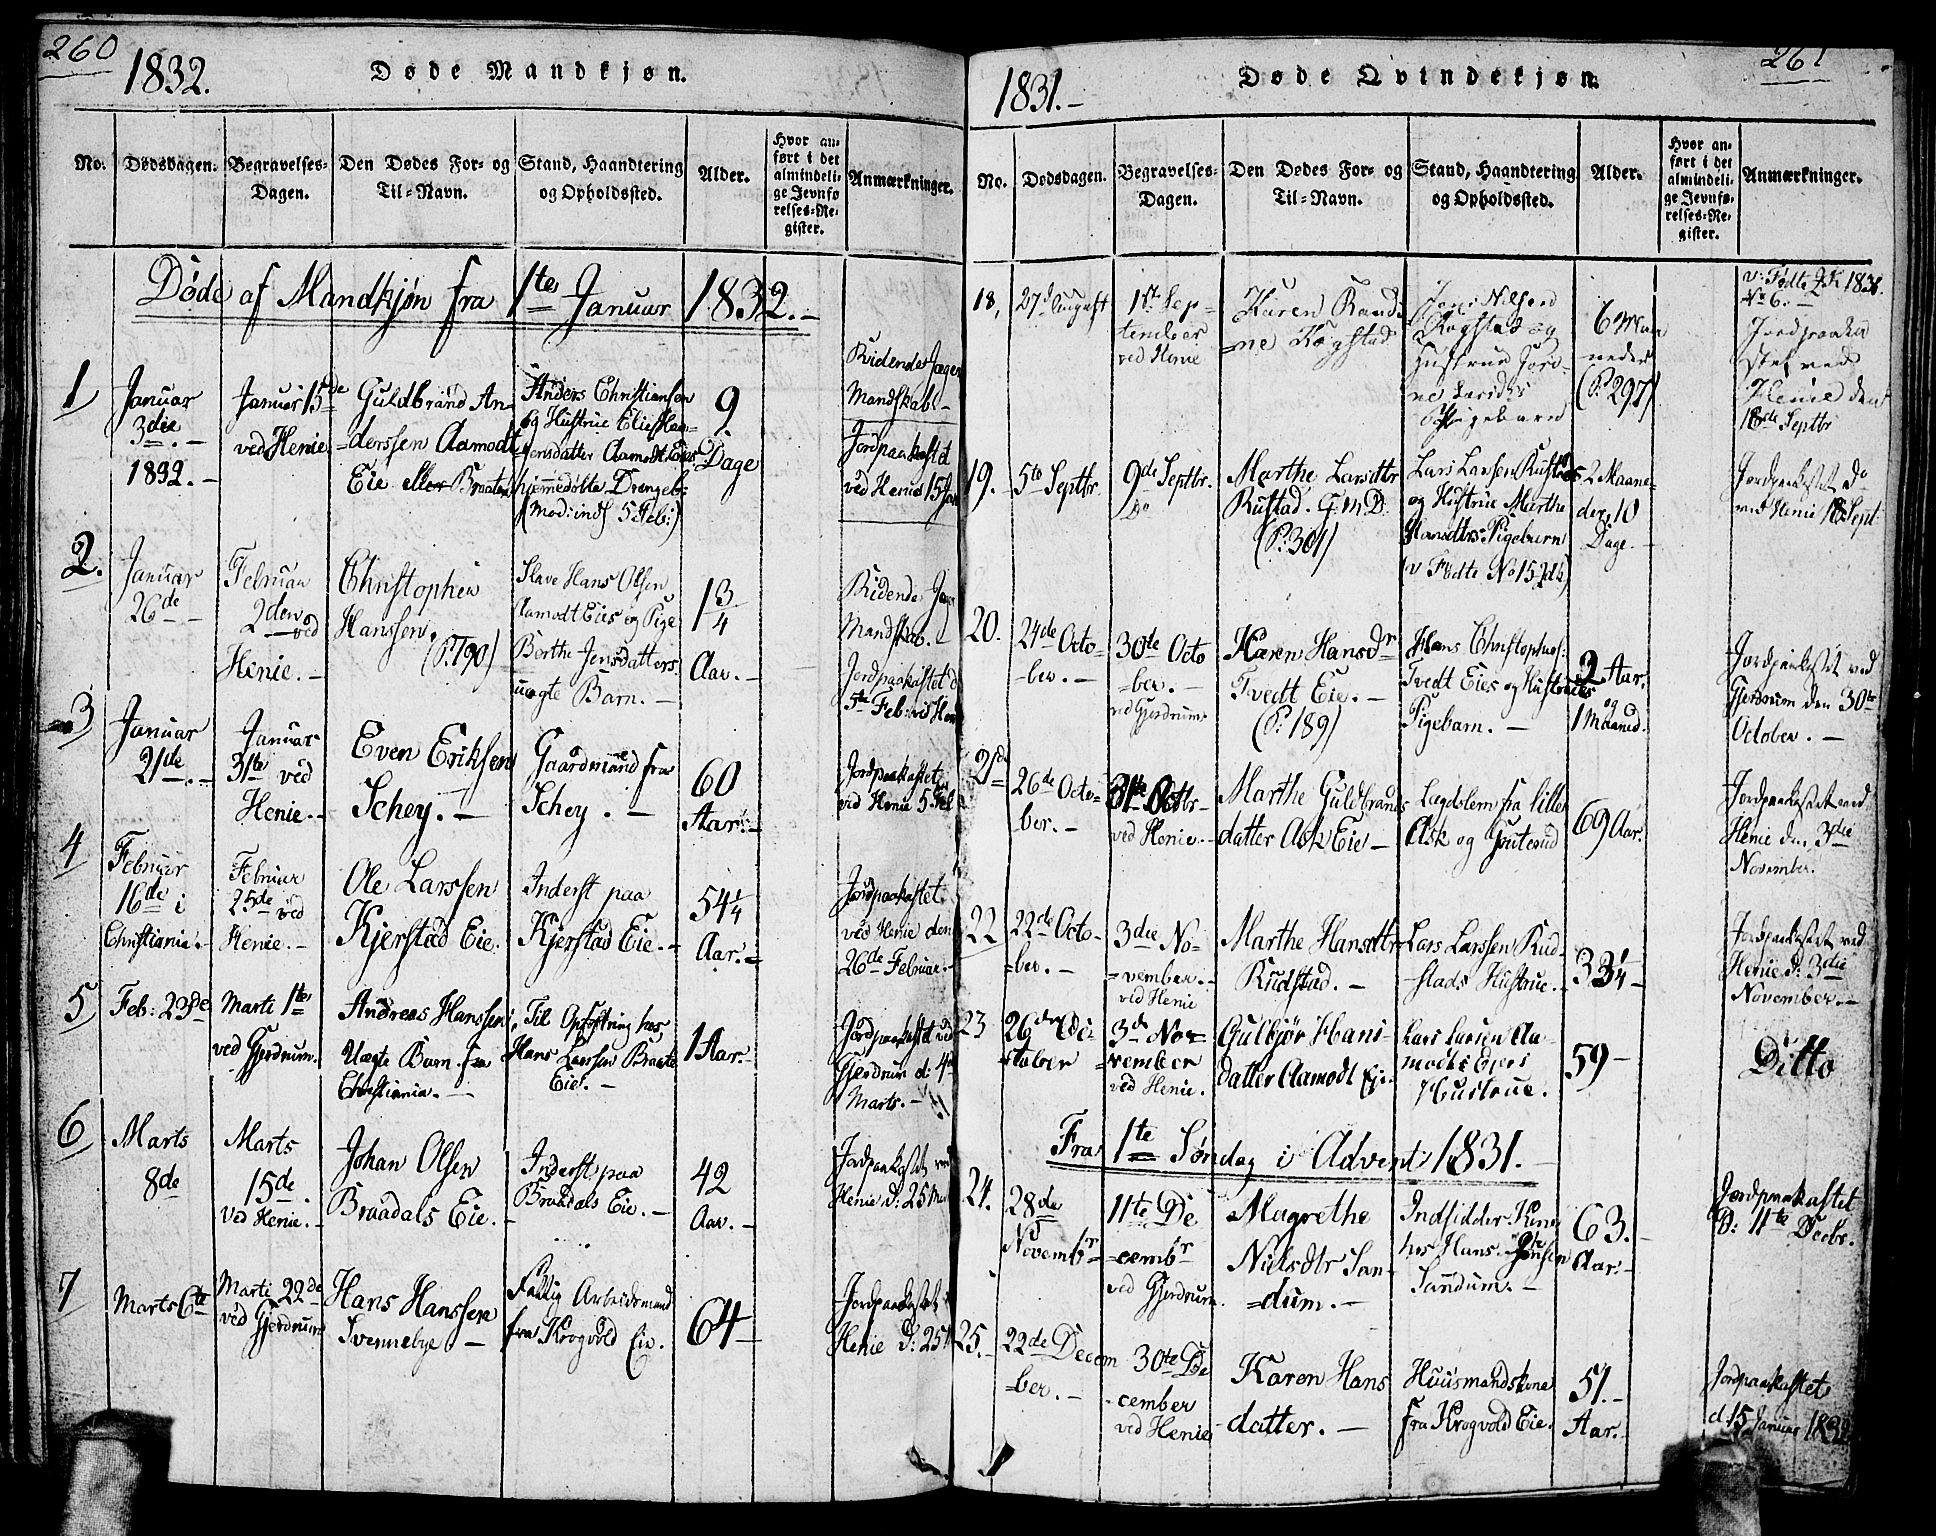 260
1832.
Døde Mandkjøn.
No.
Dødsdagen.
Begravelses-
Dagen.
Den Dødes For- og
Til-Navn.
Stand, Haandtering
og Opholdssted.
Alder.
Hvor an-
ført i det
almindeli-
ge Jevnfø-
relses-Re-
gister.
Anmærkninger.
Døde af Mandkjøn fra 1te Januar 1832.
1
Januar
3die
1832.
Januar 15de
ved Henie
Guldbrand An-
derssen Aamodt
Eie eller Braaten
Anders Christiansen
og Hustrue Elie Han-
sensdatter Aamodt Eies
hjemmedøbte Drengeb:
9
Dage
Ridende Jæger
Mandskab
Jordpaakastet
ved Henie 15 Jan
2.
Januar
26de
Februar
2den ved
Henie.
Christopher
Hanssen.
(P. 190)
Slave Hans Olsen
Aamodt Eies og Pige
Berthe Jensdatters
uægte Barn.
1 3/4
Aar.
Ridende Jæger
Mandskab.
Jordpaakastet d
5te Feb: ved Henie
3
Januar
21de
Januar
31te ved
Henie.
Even Eriksen
Schey.
Gaardmand fra
Schey.
60
Aar.
Jordpaakastet
ved Henie 5 Feb
4
Februar
16de i
Christiania.
Februar
25de ved
Henie.
Ole Larssen
Kjerstad Eie.
Inderst paa
Kjerstad Eie.
54 1/4
Aar.
Jordpaakastet
ved Henie den
26de Februar.
5
Feb: 23de
Marti 1te
ved Gjerdrum.
Andreas Hanssen
Uægte Barn fra
Christiania.
Til Opfostring hos
Hans Larssen Braate
Eie.
1 Aar.
Jordpaakastet ved
Gjerdrum d: 4de
Marts.
6
Marts
8de
Marts
15de.
ved Henie.
Johan Olsen
Braadals Eie.
Inderst paa
Braadals Eie.
42
Aar.
Jordpaakastet ved
Henie d: 25 Mar
7
Marts 6te
Marti 22de
ved Gjerdrum
Hans Hanssen
Svennebye
Fattig Arbeidsmand
fra Krogvold Eie.
64
Jordpaakastet
Henie d: 25
261
1831.
Døde Qvindekjøn.
No.
Dødsdagen.
Begravelses-
Dagen.
Den Dødes For- og
Til-Navn.
Stand, Haandtering
og Opholdssted.
Alder.
Hvor an-
ført i det
almindeli-
ge Jevnfø-
relses-Re-
gister.
Anmærkninger.
18,
27de August
1ste Sep-
tember
ved Henie
Karen Randi-
ne Kogstad
Jens Nilsens
Kogstad og
Hustrue
Pigebarn
6 Maa
neder
(P. 297)
v: Fødte 1831.
No 6.
Jordpaaka
stet ved
Henie den
18de Septbr
19.
5te Septbr.
9de Septbr.
Do
Marthe Larsdtr
Rustad. G.m.D.
(P. 301)
Lars Larsen Rustads
og Hustrue Marthe
Hansdtrs Pigebarn
(v Fødte No 15)
2 Maane-
der, 10
Dage.
Jordpaakastet do
ved Henie 18 Sept:
20.
24de Octo-
ber.
30te Octo
ber.
ved Gjerdrum.
Karen Hansdr
Tvedt Eie.
(P. 189)
Hans Christophers:
Tvedt Eies og Hustrues
Pigebarn.
2 Aar.
og
1 Maaned.
Jordpaakastet ved
Gjerdrum den 30te
October.
21de
26de Octo-
ber.
31te Octbr
ved Henie.
Marthe Guldbrands
datter Ask Eie
Lægdslem fra lille
Ask og
69 Aar.
Jordpaakastet ved
Henie den 3die
November.
22
22de Octo-
ber.
3die No-
vember.
ved Henie
Marthe Hansdtr
Rudstad.
Lars Larssen Rud-
stads Hustrue.
33 1/4
Jordpaakastet ved
Henie d: 3die
November.
23
26de Oc-
tober
3de No-
vember
ved Henie.
Gulbjør Hans-
datter Aamodt Eje
Lars Larsen Aa-
modts Ejers
Hustrue.
59
Ditto
Fra 1te Søndag i Advent 1831.
24.
28de
Novembr
11te De
cembr
ved Gjerdrum.
Magrethe
Nielsdtr San-
dum.
Indsidder Kone
hos Hans Jensen
Sandum.
63.
Aar.
Jordpaakastet
D: 11te Decbr.
25.
22de Decem
ber.
30te De
cember
ved Henie
Karen Hans
datter.
Huusmandskone
fra Krogvold Eie.
51.
Aar.
Jordpaakastet
d. 15 Januar 1832